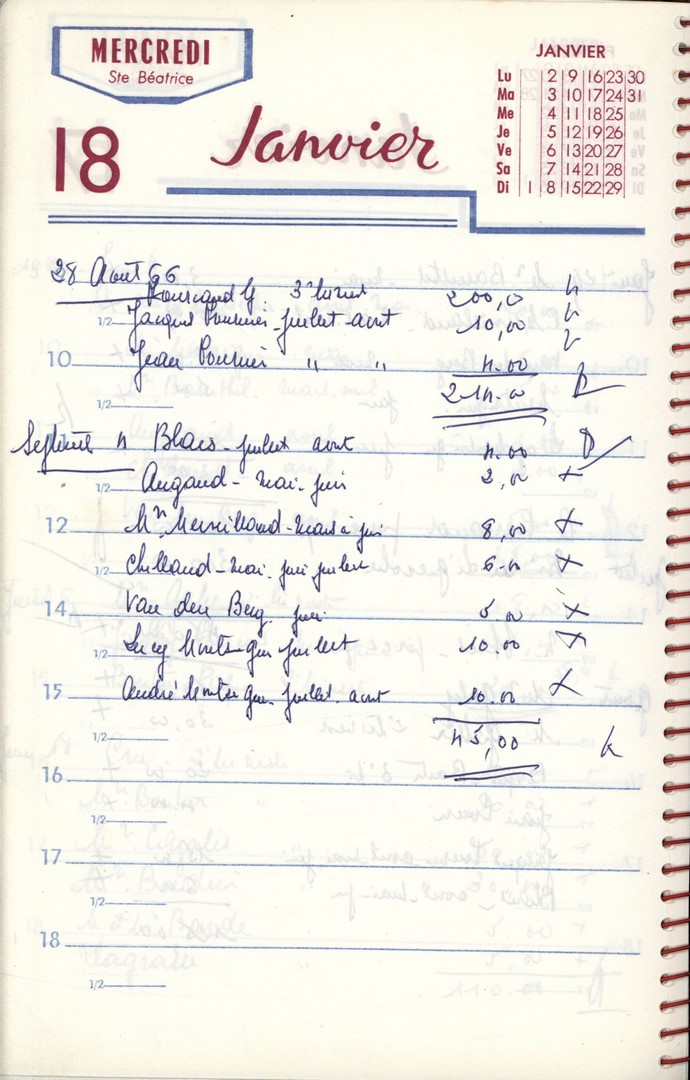 MERCREDI
Ste Béatrice
18
Janvier
JANVIER
Lu 2 9 16 23 30
Ma 3 10 17 24 31
Me 4 11 18 25
Je 5 12 19 26
Ve 6 13 20 27
Sa 7 14 21 28
Di 1 8 15 22 29
28 Août 66
3e 200,00
1/2 Jacques Pournier - juillet - aout 10,00
10 Jean Pournier " " 4.00
214.00
1/2
Septembre 4 Blais - juillet aout 4.00
1/2 Augaud - mai - juin 2,00
12 8,00
1/2 Chillaud - mai - juin juillet 6.00
14 Van den Berg juin 5,00
1/2 Lucy juillet 10.00
15 André juillet - aout 10.00
1/2 45,00
16
1/2
17
1/2
18
1/2